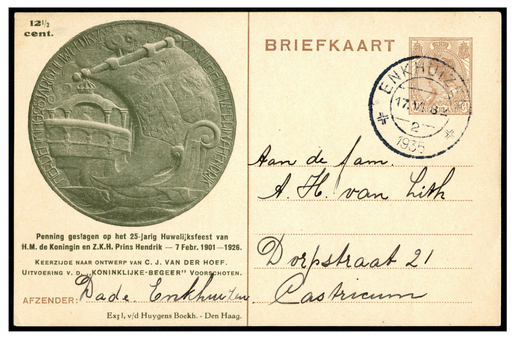 12½
cent.
BRIEFKAART
ENKHUIZEN
17.VI. 8-9
2
1935
Penning geslagen op het 25-jarig Huwelijksfeest van
H.M. de Koningin en Z.K.H. Prins Hendrik — 7 Febr. 1901—1926.
Keerzijde naar ontwerp van C. J. VAN DER HOEF.
Uitvoering v. d. „KONINKLIJKE-BEGEER” Voorschoten.
AFZENDER: Dade. Enkhuizen.
Expl. v/d Huygens Boekh. - Den Haag.
Aan de fam.
A. H. van Lith
Dorpstraat 21
Castricum